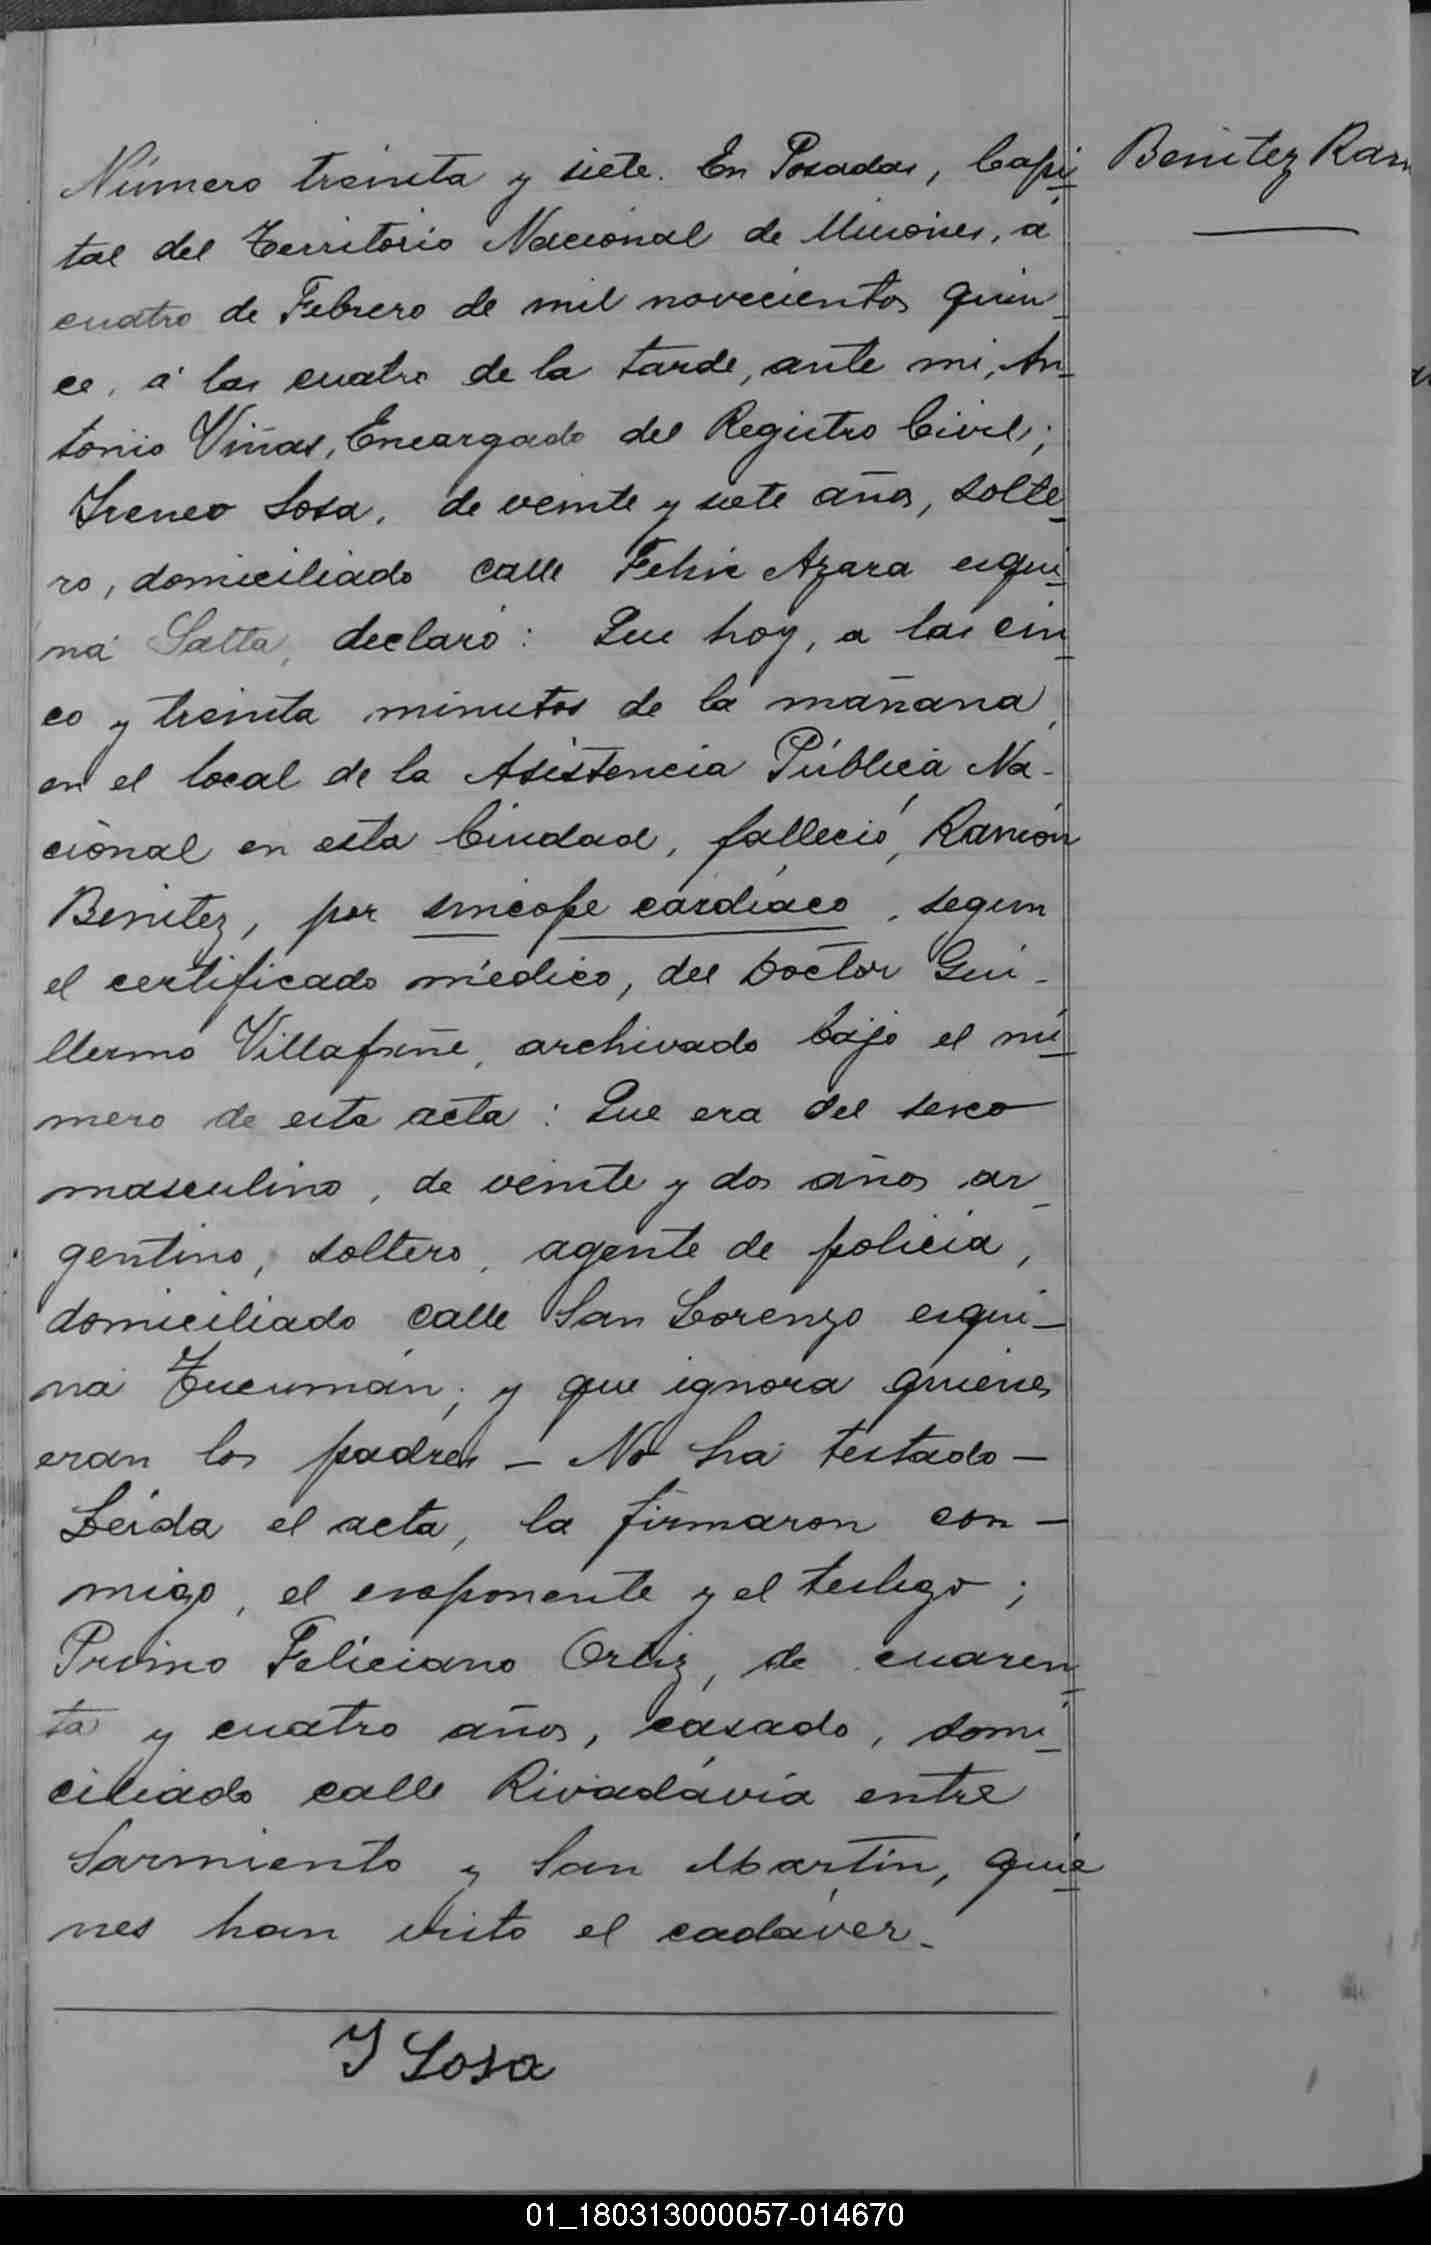 Número treinta y siete. En Posadas, Capi-
Benitez Ram
tal del Territorio Nacional de Misiones, á
cuatro de Febrero de mil novecientos quin-
ce, á las cuatro de la tarde, ante mi, An-
tonio Viñas, Encargado del Registro Civil;
Ireneo Sosa, de veinte y siete años, solte-
ro, domiciliado calle Felix Azara esqui-
na Salta, declaró: Que hoy, a las cin-
co y treinta minutos de la mañana,
en el local de la Asistencia Pública Na-
cional en esta Ciudad, falleció, Ramón
Benitez, por sincope cardíaco, segun
el certificado médico, del Doctor Gui-
llermo Villafañe, archivado bajo el nú-
mero de esta acta: Que era del sexo
masculino, de veinte y dos años, ar-
gentino, soltero, agente de policia,
domiciliado calle San Lorenzo esqui-
na Tucumán; y que ignora quienes
eran los padres - No ha testado -
Leida el acta, la firmaron con -
migo, el exponente y el testigo;
Primo Feliciano Ortiz, de cuaren-
ta y cuatro años, casado, domi-
ciliado calle Rivadavia entre
Sarmiento y San Martín, quie-
nes han visto el cadáver.-
I Sosa
01_180313000057-014670